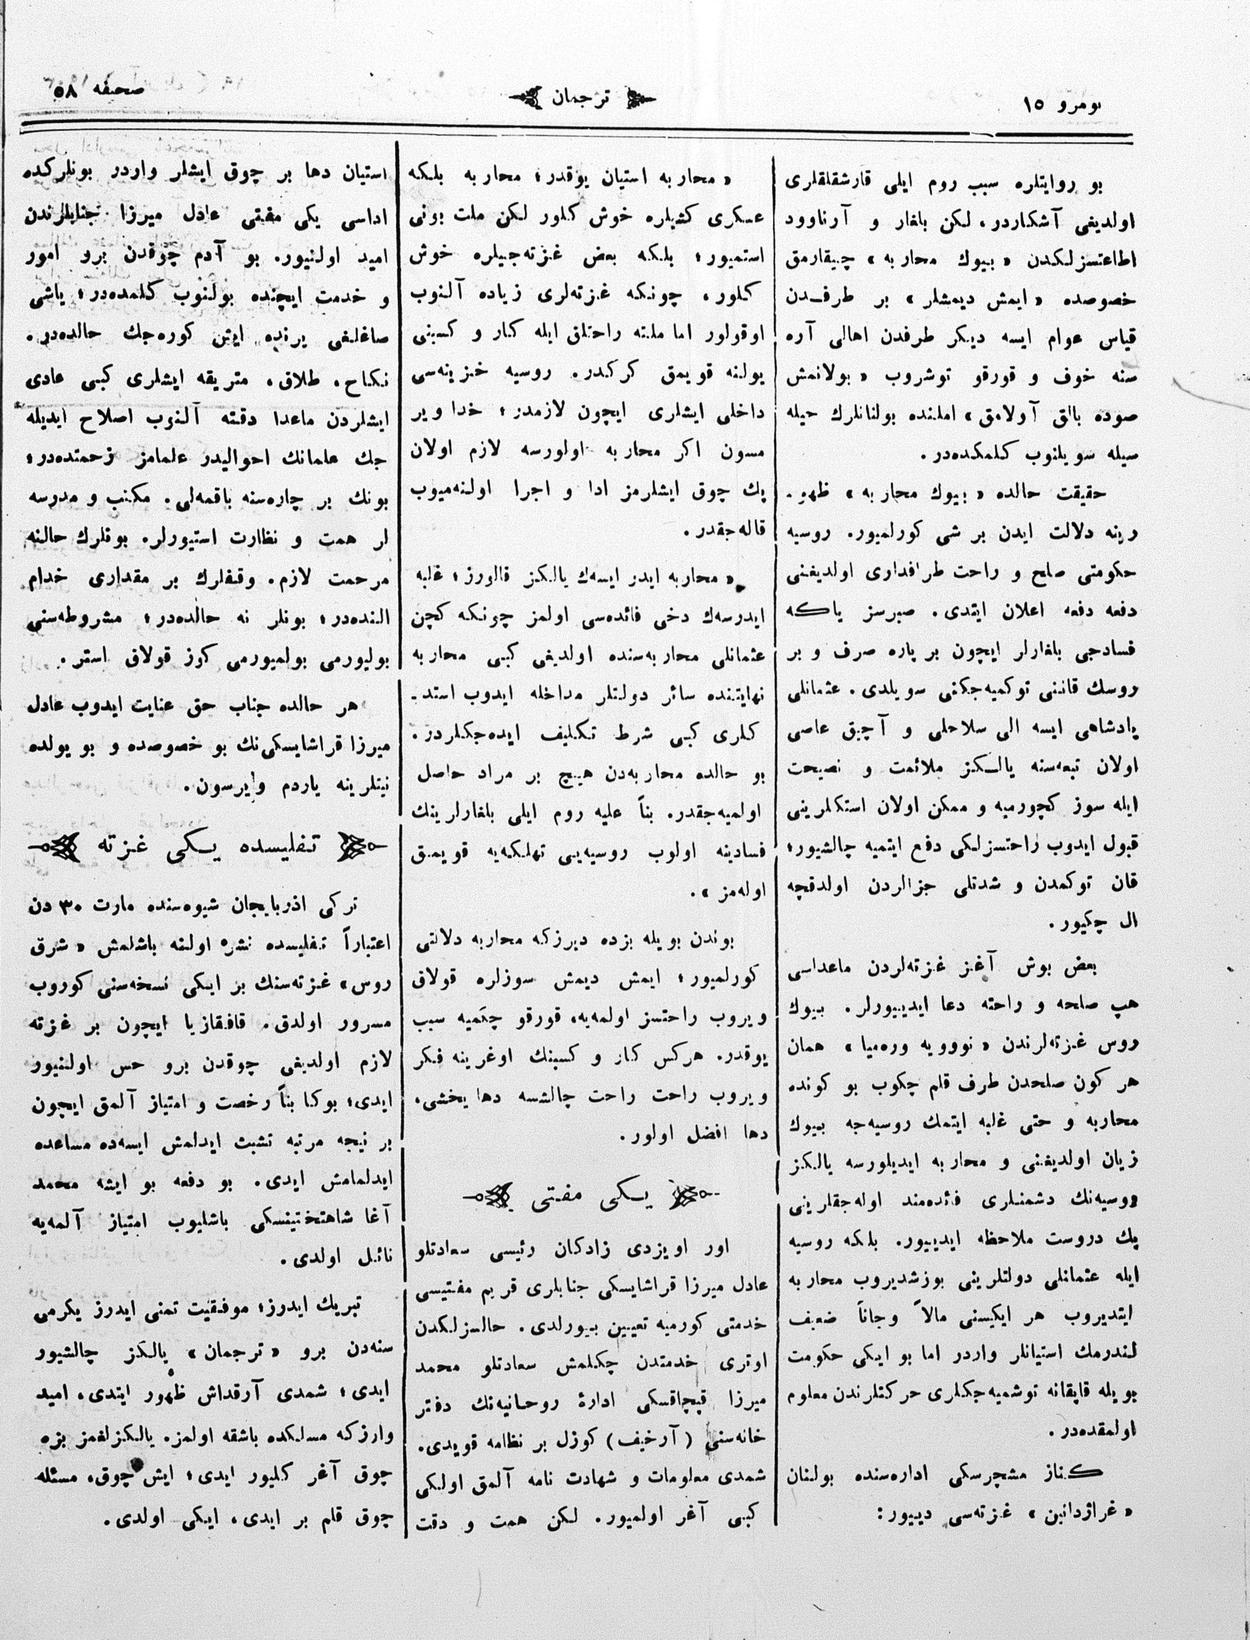 نومرو ١٥
ترجمان
صحیفه ٥٨
بو روایتلره سبب روم ایلی قارشقلقلری
اولدیغی آشکاردر، لکن بلغار و آرناوود
اطاعتسزلکدن « بیوك محاربه » چیقارمق
خصوصده « ایمش دیمشلر » بر طرفدن
قیاس عوام ایسه دیکر طرفدن اهالی آره
سنه خوف و قورقو توشروب « بولانمش
صوده بالق آولامق » املنده بولنانلرك حیله
سیله سویلنوب کلمکده‌در.
حقیقت حالده « بیوك محاربه » ظهو-
رینه دلالت ایدن بر شی کورلمیور. روسیه
حکومتی صلح و راحت طرافداری اولدیغنی
دفعه دفعه اعلان ایتدی. صبرسز یاکه
فسادجی بلغارلر ایچون بر پاره صرف و بر
روسك قاننی توکمیه‌جکنی سویلدی. عثمانلی
پادشاهی ایسه الی سلاحلی و آچیق عاصی
اولان تبعه‌سنه یالکز ملائمت و نصیحت
ایله سوز کچورمیه و ممکن اولان استکلرینی
قبول ایدوب راحتسزلکی دفع ایتمیه چالشیور؛
قان توکمدن و شدتلی جزالردن اولدقچه
ال چکیور.
بعض بوش آغز غزته‌لردن ماعداسی
هپ صلحه و راحته دعا ایدییورلر. بیوك
روس غزته‌لرندن « نوویه وره‌میا » همان
هر کون صلحدن طرف قلم چکوب بو کونده
محاربه و حتی غلبه ایتمك روسیه‌جه بیوك
زیان اولدیغنی و محاربه ایدیلورسه یالکز
روسیه‌نك دشمنلری فائده‌مند اوله‌جقلرینی
پك دروست ملاحظه ایدییور. بلکه روسیه
ایله عثمانلی دولتلرینی بوزشدیروب محاربه
ایتدیروب هر ایکیسنی مالاً وجاناً ضعیف
لندرمك استیانلر واردر اما بو ایکی حکومت
بویله قاپقانه توشمیه‌جکلری حرکتلرندن معلوم
اولمقده‌در.
کناز مشچرسکی اداره‌سنده بولنان
« غراژدانین » غزته‌سی دییور:
« محاربه استیان یوقدر؛ محاربه بلکه
عسکری کشیلره خوش کلور لکن ملت بونی
استمیور؛ بلکه بعض غزته‌جیلره خوش
کلور، چونکه غزته‌لری زیاده آلنوب
اوقولور اما ملته راحتلق ایله کار و کسبنی
یولنه قویمق کرکدر. روسیه خزینه‌سی
داخلی ایشلری ایچون لازمدر؛ خدا ویر
مسون اکر محاربه اولورسه لازم اولان
پك چوق ایشلرمز ادا و اجرا اولنه‌میوب
قاله‌جقدر.
« محاربه ایدر ایسه‌ك یالکز قالورز؛ غلبه
ایدرسه‌ك دخی فائده‌سی اولمز چونکه کچن
عثمانلی محاربه‌سنده اولدیغی کبی محاربه
نهایتنده سائر دولتلر مداخله ایدوب استد-
کلری کبی شرط تکلیف ایده‌جکلردر.
بو حالده محاربه‌دن هیچ بر مراد حاصل
اولمیه‌جقدر. بناً علیه روم ایلی بلغارلرینك
فسادینه اولوب روسیه‌یی تهلکه‌یه قویمق
اوله‌مز ».
بوندن بویله بزده دیرزکه محاربه دلالتی
کورلمیور؛ ایمش دیمش سوزلره قولاق
ویروب راحتسز اولمه‌یه، قورقو چکمیه سبب
یوقدر. هرکس کار و کسبنك اوغرینه فکر
ویروب راحت راحت چالشسه دها یخشی،
دها افضل اولور.
یکی مفتی
اور اویزدی زادکان رئیسی سعادتلو
عادل میرزا قراشایسکی جنابلری قریم مفتیسی
خدمتی کورمیه تعیین بیورلدی. حالسزلکدن
اوتری خدمتدن چکلمش سعادتلو محمد
میرزا قپچاقسکی ادارۀ روحانیه‌نك دفتر
خانه‌سنی (آرخیف) کوزل بر نظامه قویدی.
شمدی معلومات و شهادت نامه آلمق اولکی
کبی آغر اولمیور. لکن همت و دقت
استیان دها بر چوق ایشلر واردر بونلرکده
اداسی یکی مفتی عادل میرزا جنابلرندن
امید اولنیور. بو آدم چوقدن برو امور
و خدمت ایچنده بولنوب کلمده‌در؛ یاشی
صاغلغی یرنده ایش کوره‌جك حالده‌در.
نکاح، طلاق، متریقه ایشلری کبی عادی
ایشلردن ماعدا دقته آلنوب اصلاح ایدیله
جك علمانك احوالیدر علمامز زحمتده‌در؛
بونك بر چاره‌سنه باقمه‌لی. مکتب و مدرسه
لر همت و نظارت استیورلر. بونلرك حالنه
مرحمت لازم. وقفلرك بر مقداری خدام
النده‌در؛ بونلر نه حالده‌در؛ مشروطه‌سنی
بولیورمی بولمیورمی کوز قولاق استر.
هر حالده جناب حق عنایت ایدوب عادل
میرزا قراشایسکی‌نك بو خصوصده و بو یولده
نیتلرینه یاردم ویرسون.
تفلیسده یکی غزته
ترکی اذربایجان شیوه‌سنده مارت ٣٠ دن
اعتباراً تفلیسده نشره اولنه باشلمش « شرق
روس » غزته‌سنك بر ایکی نسخه‌سنی کوروب
مسرور اولدق. قافقازیا ایچون بر غزته
لازم اولدیغی چوقدن برو حس اولنیور
ایدی؛ بوکا بناً رخصت و امتیاز آلمق ایچون
بر نیجه مرتبه تشبث ایدلمش ایسه‌ده مساعده
ایدلمامش ایدی. بو دفعه بو ایشه محمد
آغا شاهتختینسکی باشلیوب امتیاز آلمه‌یه
نائل اولدی.
تبریك ایدوز؛ موفقیت تمنی ایدرز یکرمی
سنه‌دن برو « ترجمان » یالکز چالشیور
ایدی؛ شمدی آرقداش ظهور ایتدی، امید
وارزکه مسلکده باشقه اولمز. یالکزلغمز بزه
چوق آغر کلیور ایدی؛ ایش چوق، مسئله
چوق قلم بر ایدی، ایکی اولدی.